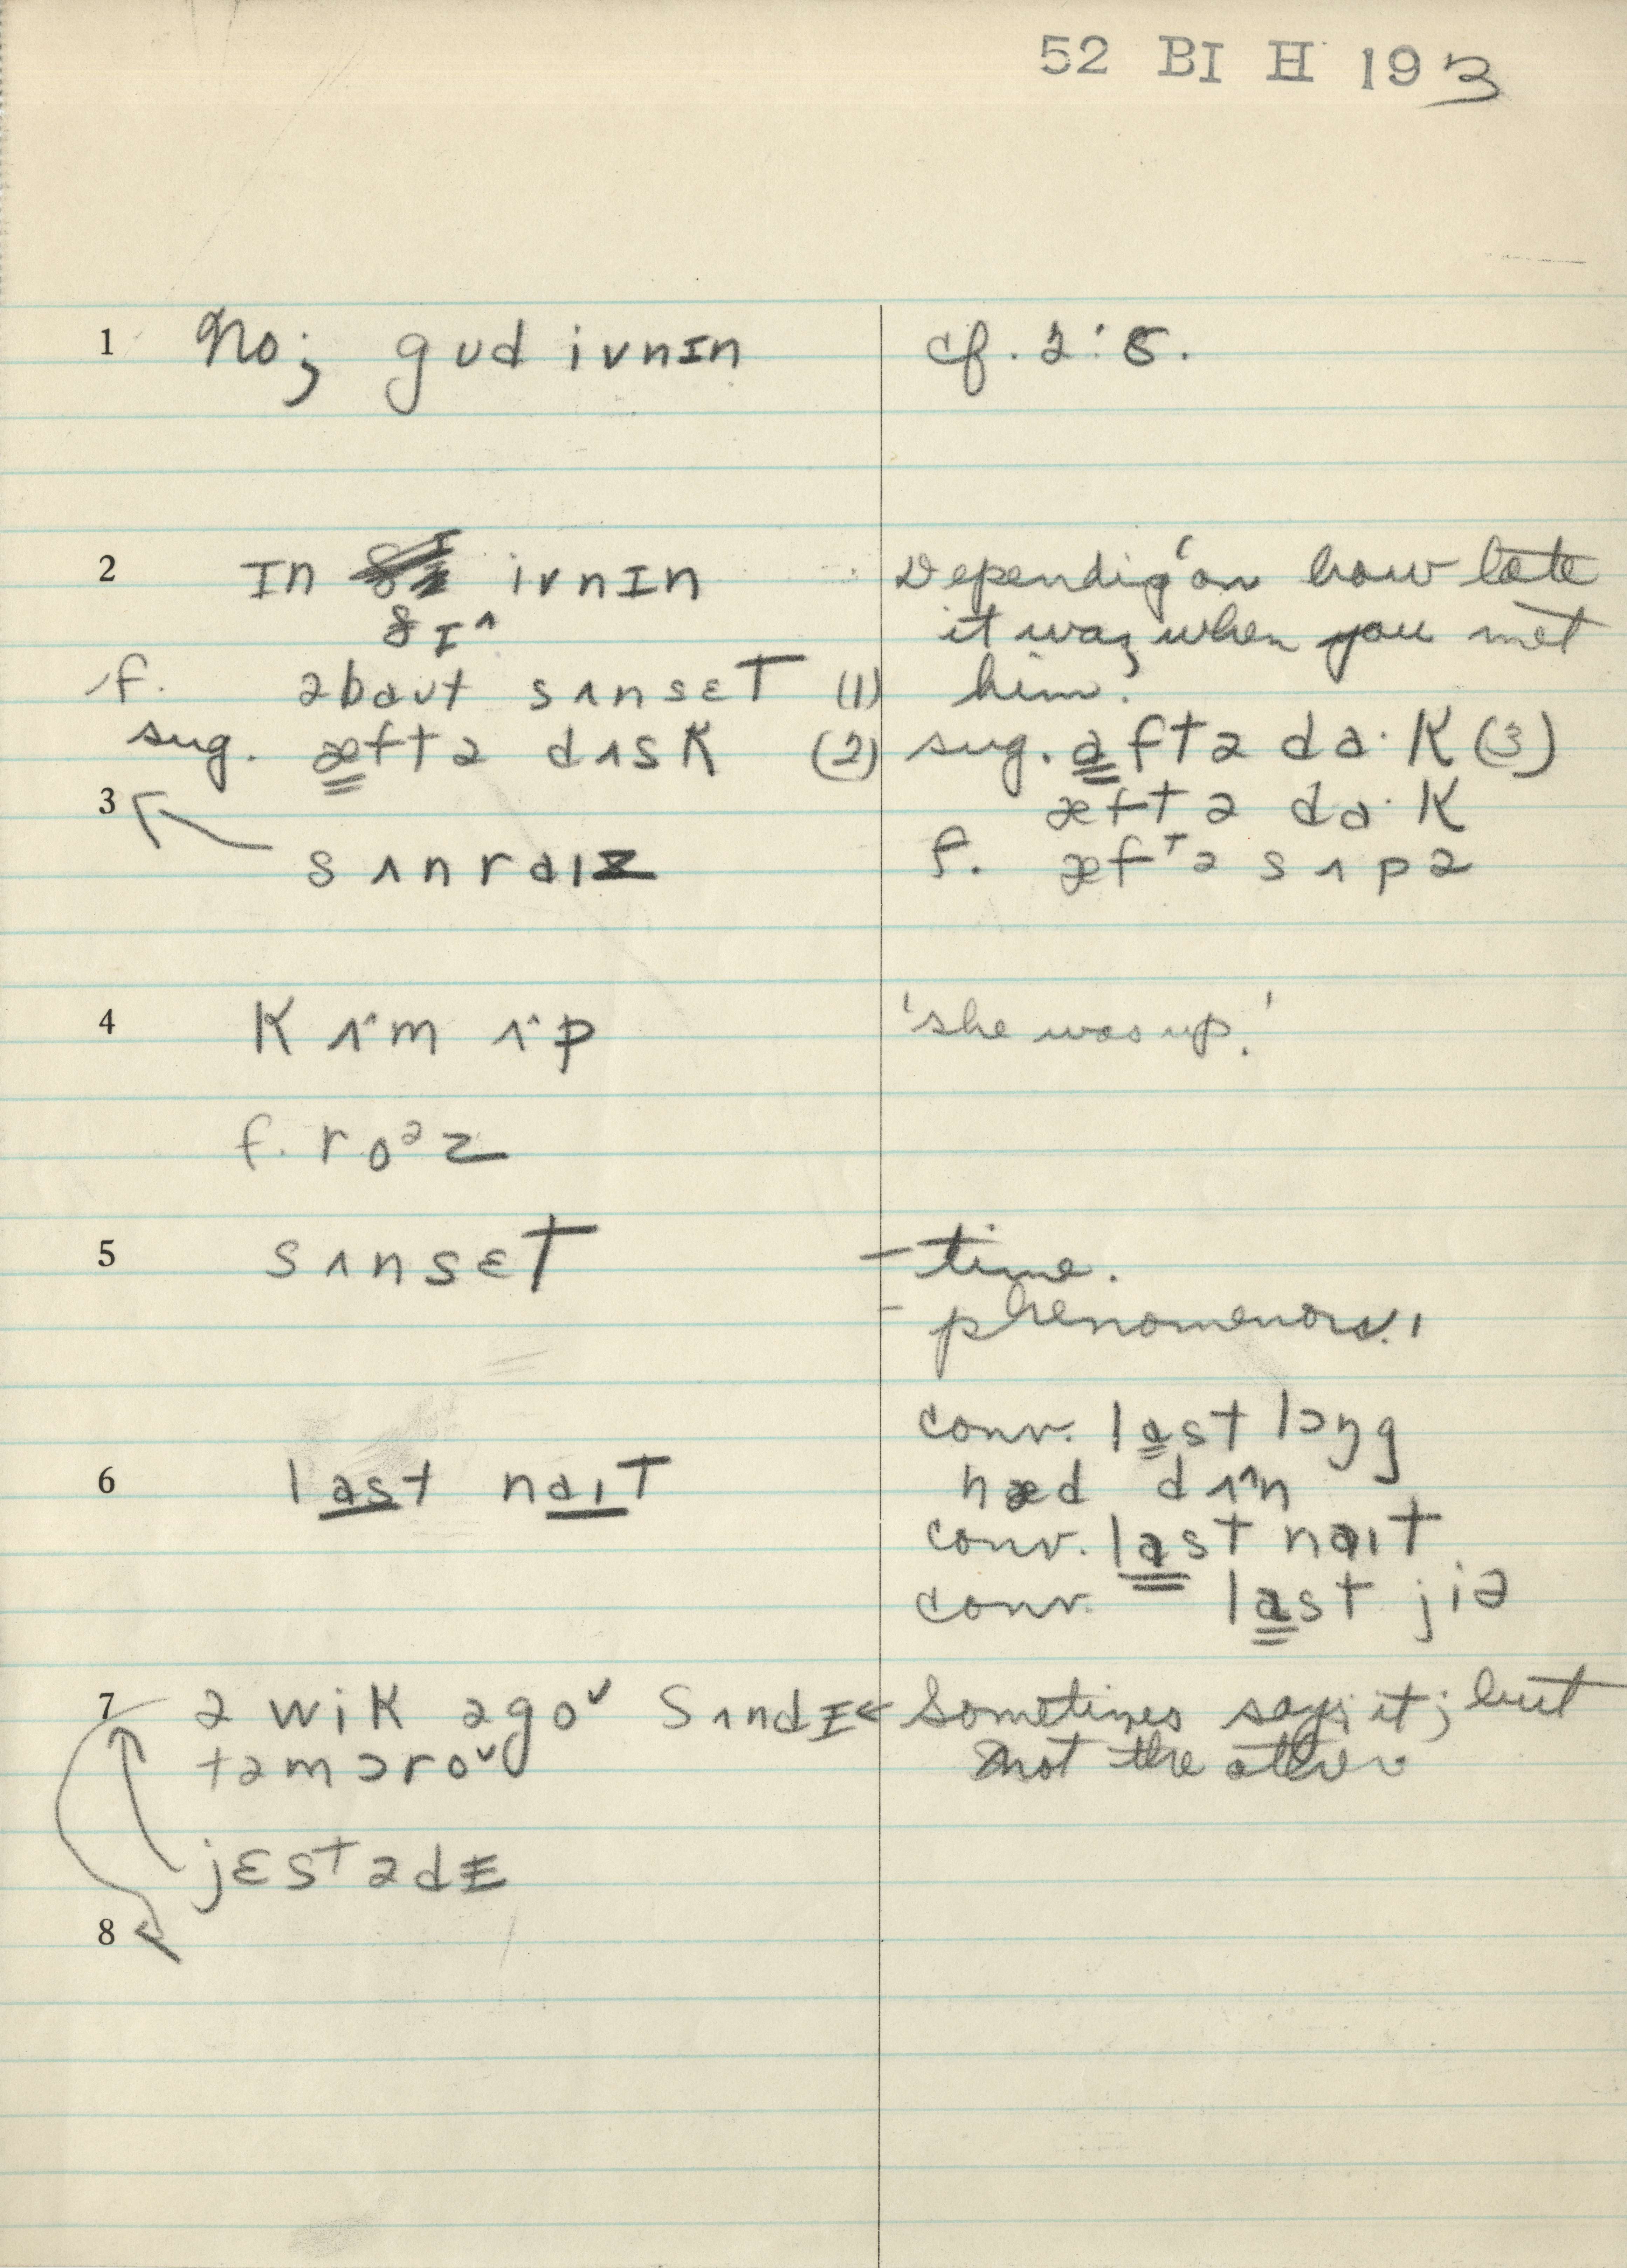 52 BI H 193
1 No; gʊd ivnɪn cf. 2:5.
2 ɪn ðɪ^ ivnɪn 'Depending on how late
it was, when you met
f. əbaʊt sʌnsɛt (1) him.'
sug. æftə dʌsk (2) sug. aftə da·k (3)
3 æftə da·k
sʌnraɪz f. æftə sʌpə
4 kʌ^m ʌ^p 'she was up.'
f. roᵊz
5 sʌnsɛt - time.
- phenomenon.
conv. last lɔŋg
6 last naɪt hæd dʌ^n
conv. last naɪt
conv. last jiə
7 ə wik əgoˇ sʌndɪ ← sometimes says it; but
təmɔroˇ not the other
jɛstədɪ
8